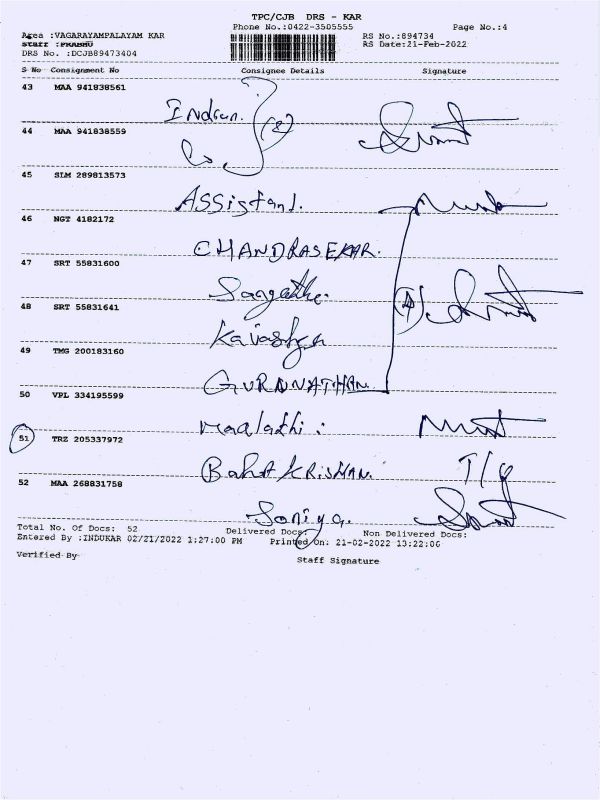 TPC/CJB DRS - KAR
Phone No.:0422-3505555 Page No.:4
Area :VAGARAYAMPALAYAM KAR RS No.:894734
Staff :PRABHU RS Date:21-Feb-2022
DRS No. :DCJB89473404
S No Consignment No Consignee Details Signature
43 MAA 941838561
Indian. (2)
44 MAA 941838559
45 SLM 289813573
Assistant.
46 NGT 4182172
CHANDRASEKAR.
47 SRT 55831600
(4)
48 SRT 55831641
49 TMG 200183160
GURUNATHAN
50 VPL 334195599
maalathi :
51 TRZ 205337972
KRISHAN.
52 MAA 268831758
Soniya.
Total No. Of Docs: 52 Delivered Docs: Non Delivered Docs:
Entered By :INDUKAR 02/21/2022 1:27:00 PM Printed On: 21-02-2022 13:22:06
Verified By Staff Signature